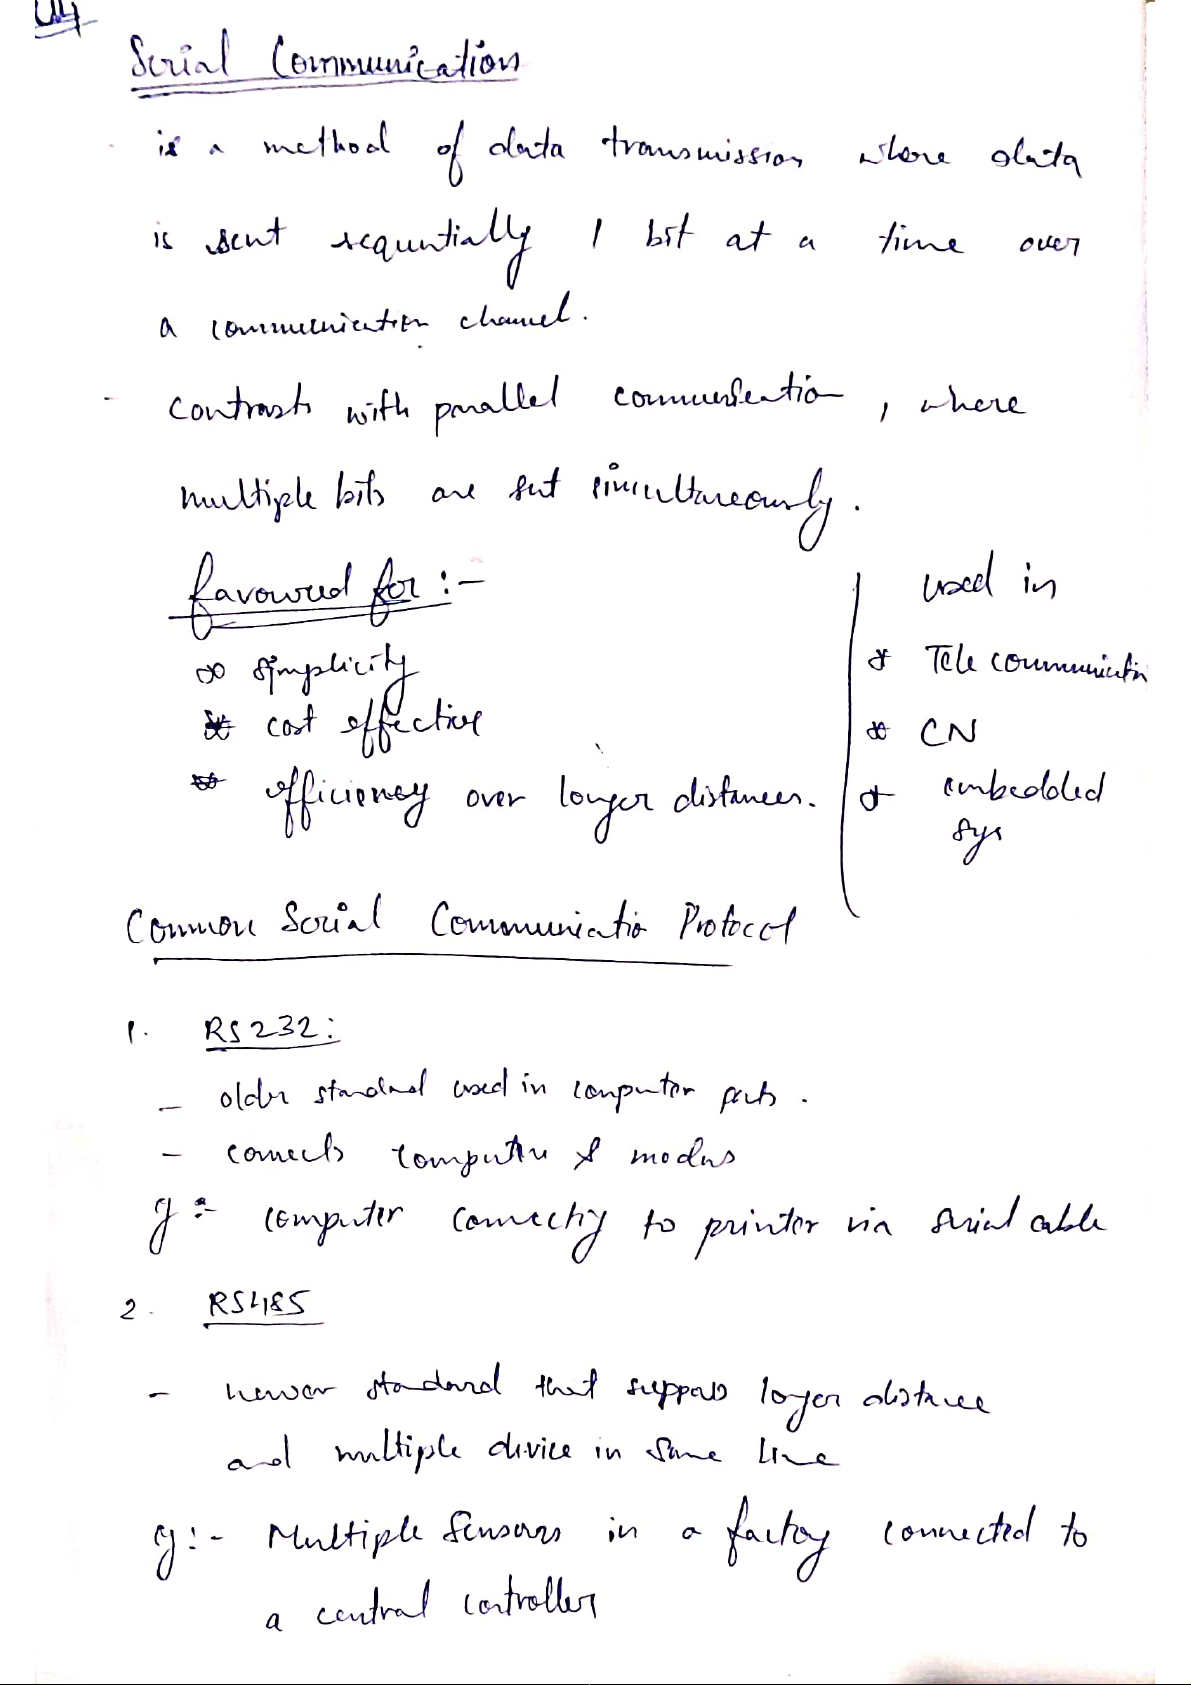 U4
Serial Communication
is a method of data transmission where data
is sent sequntially 1 bit at a time over
a communication channel.
- contrasts with parallel communication, where
multiple bits are sent simultaneously.
favoured for :-
* simplicity
* cost effective
* efficiency over longer distances.
used in
* Tele communicatin
* CN
* embedded
sys
Common Serial Communicatio Protocol
1. RS232:
- older standard used in computer ports.
- connects computer & modems
eg :- computer connecting to printer via serial cable
2. RS485
- newer standard that supports longer distance
and multiple device in same line
eg :- Multiple Sensors in a factory connected to
a central controller